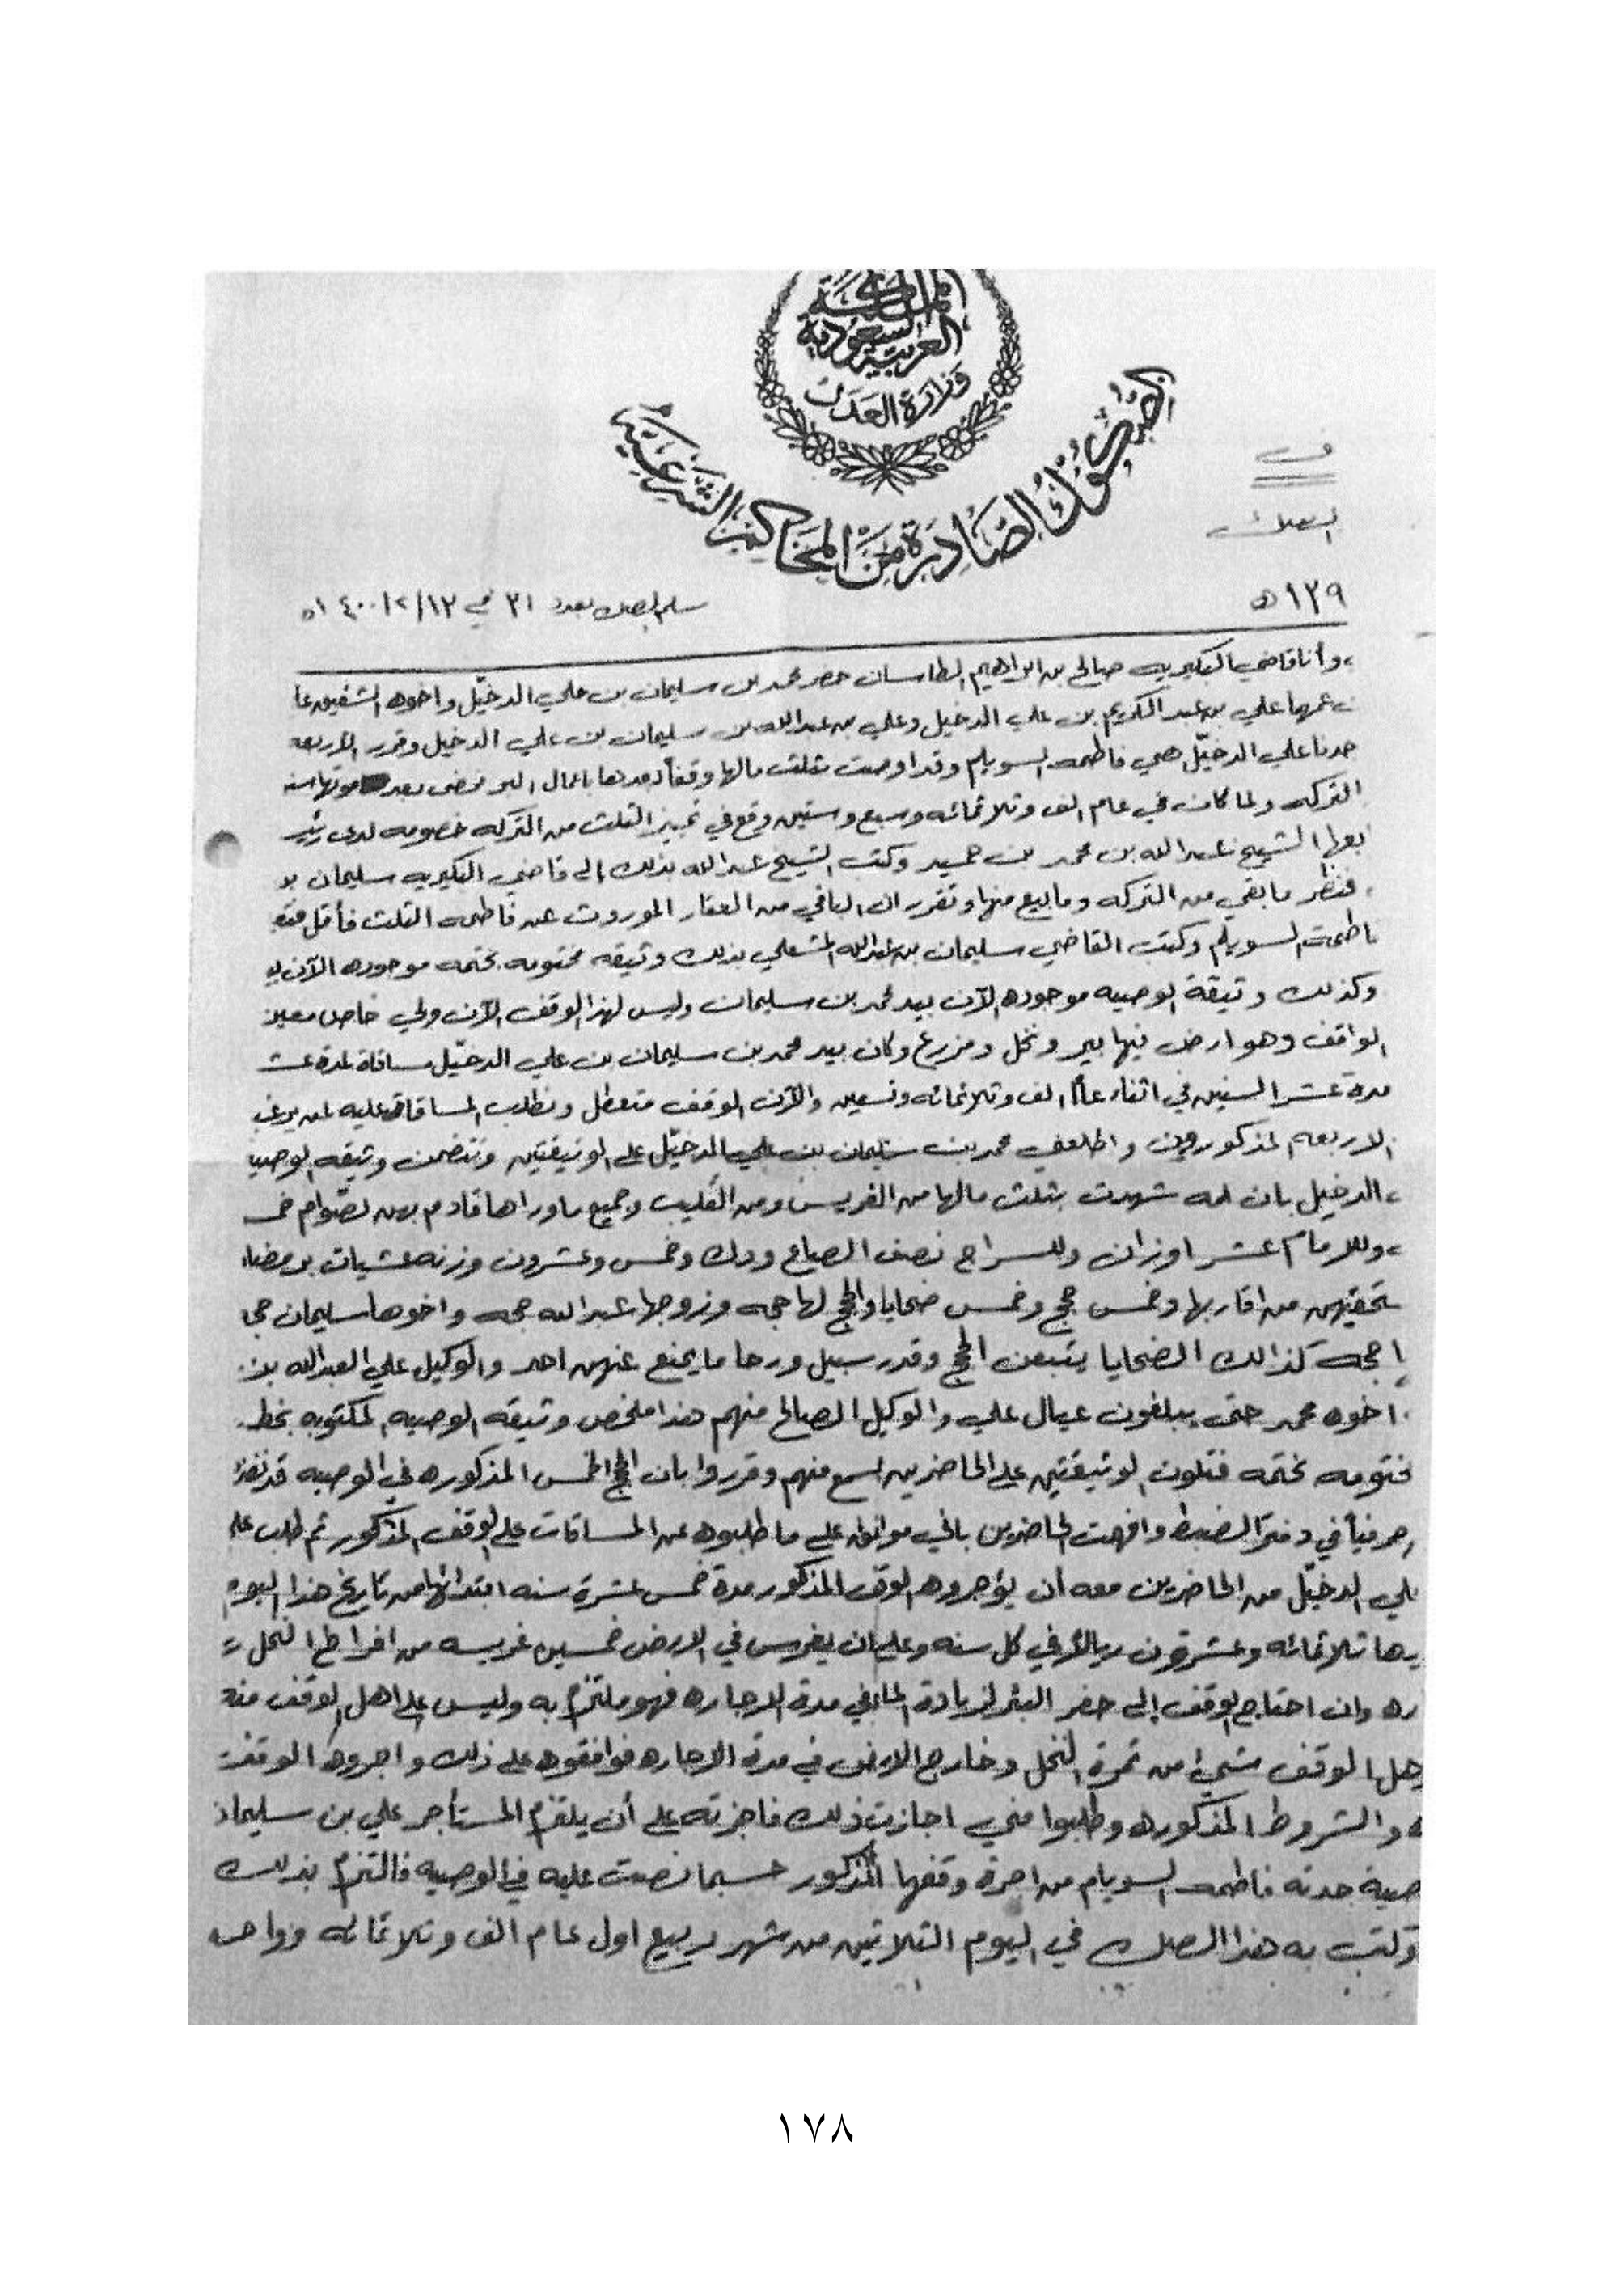 المملكة
العربية السعودية
وزارة العدل
الصكوك الصادرة من المحاكم الشرعية
١٣٩ هـ
سلم الصك بعدد ٣١ في ١٤٠٠/٢/١٢ هـ
، وأنا قاضي البكيريه صالح بن ابراهيم الطاسان حضر محمد بن سليمان بن علي الدخيّل واخوه الشقيق عا
ن عمهما علي بن عبد الكريم بن علي الدخيل وعلي بن عبدالله بن سليمان بن علي الدخيل وقرر الأربعه
جدنا علي الدخيّل هي فاطمه السويلم وقد اوصت بثلث مالها وقفاً بعدها باعمال البر فمضى بعد موتها سنه
التركه ولما كان في عام الف وثلاثمائه وسبع وستين وقع في تمييز الثلث من التركه خصومه لدى رئيـ
بعها الشيخ عبدالله بن محمد بن حميد وكتب الشيخ عبدالله بذلك إلى قاضي البكيريه سليمان بو
، فنظر ما بقي من التركه وما بيع منها وتقرر ان الباقي من العقار الموروث عن فاطمه الثلث فأقل فتو
اطمة السويلم وكتب القاضي سليمان بن عبدالله المشعلي بذلك وثيقه مختومه بختمه موجوده الآن بيـ
وكذلك وثيقة الوصيه موجوده الآن بيد محمد بن سليمان وليس لهذا الوقف الآن ولي خاص معين
الواقف وهو ارض فيها بير ونخل ومزرع وكان بيد محمد بن سليمان بن علي الدخيّل مساقاة لمدة عشـ
مدة عشر السنين في اثناء عام الف وثلاثمائه وتسعين والآن الوقف متعطل ونطلب المساقاة عليه لمن يرغب
الاربعه المذكورون واطلعني محمد بن سليمان بن علي الدخيّل على الوثيقتين وتتضمن وثيقه الوصيـ
، الدخيل بان امه شهدت بثلث مالها من الغريس ومن القليب وجميع ماوراها قادم بهن لصوّام خمـ
، وللامام عشر اوزان وللسراج نصف الصاع ودك وخمس وعشرون وزنه عشيات برمضان
ستحقينهن من اقاربها وخمس حجج وخمس ضحايا والحجج لها حجه وزوجها عبدالله حجه واخوها سليمان حجـ
ا حجه كذالك الضحايا يتبعن الحجج وقدر سبيل ورحا ما يمنع عنهن احد والوكيل علي العبدالله بن
، اخوه محمد حتى يبلغون عيال علي والوكيل الصالح منهم هذا ملخص وثيقه الوصيه المكتوبه بخط
مختومه بختمه فتلون الوثيقتين على الحاضرين اسمع منهم وقرروا بان الحجج الخمس المذكوره في الوصيه قد نفذ
حرفياً في دفتر الضبط وافهمت الحاضرين باني موافق على ما طلبوه من المساقات على الوقف المذكور ثم طلب علـ
علي الدخيّل من الحاضرين معه أن يؤجروه الوقف المذكور مدة خمس عشرة سنه ابتدائها من تاريخ هذا اليوم
يها ثلاثمائه وعشرون ريالاً في كل سنه وعلى ان يغرس في الارض خمسين غريسه من افراط النخل
ره وان احتاج الوقف إلى حفر البئر لزيادة الماء في مدة الاجاره فهو ملتزم به وليس على اهل الوقف منه
هل الوقف شيئ من ثمرة النخل وخارج الارض في مدة الاجاره فوافقوه على ذلك واجروه الوقف
، والشروط المذكوره وطلبوا مني اجازت ذلك فاجزته على أن يلتزم المستأجر علي بن سليمان
صية جدته فاطمه السويلم من اجرة وقفها المذكور حسبما نصت عليه في الوصيه فالتزم بذلك
وكتب به هذا الصك في اليوم الثلاثين من شهر ربيع اول عام الف وثلاثمائه وواحد
١٧٨